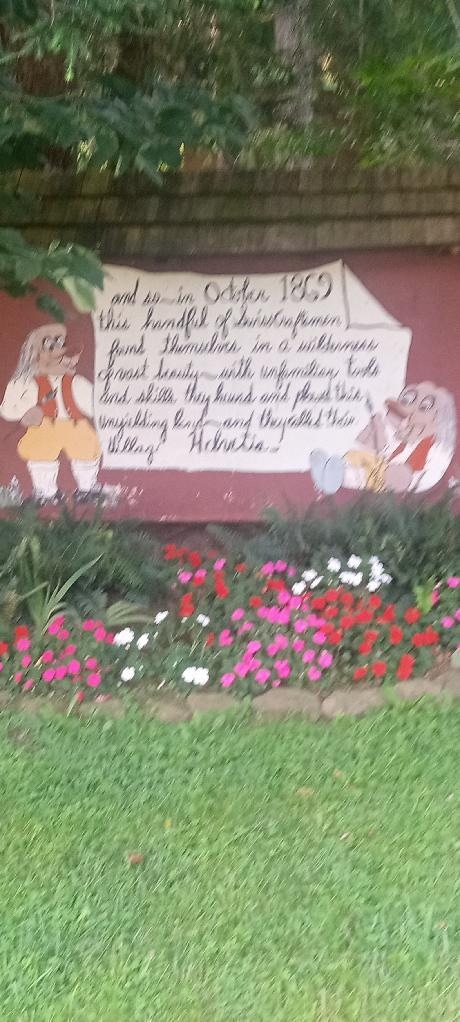 and so in October 1869
this handful of Swiss Craftsmen
found themselves in a wilderness
of vast beauty—with unfamiliar tools
and skills they hewed and plowed this
unyielding land—and they called their
village Helvetia—